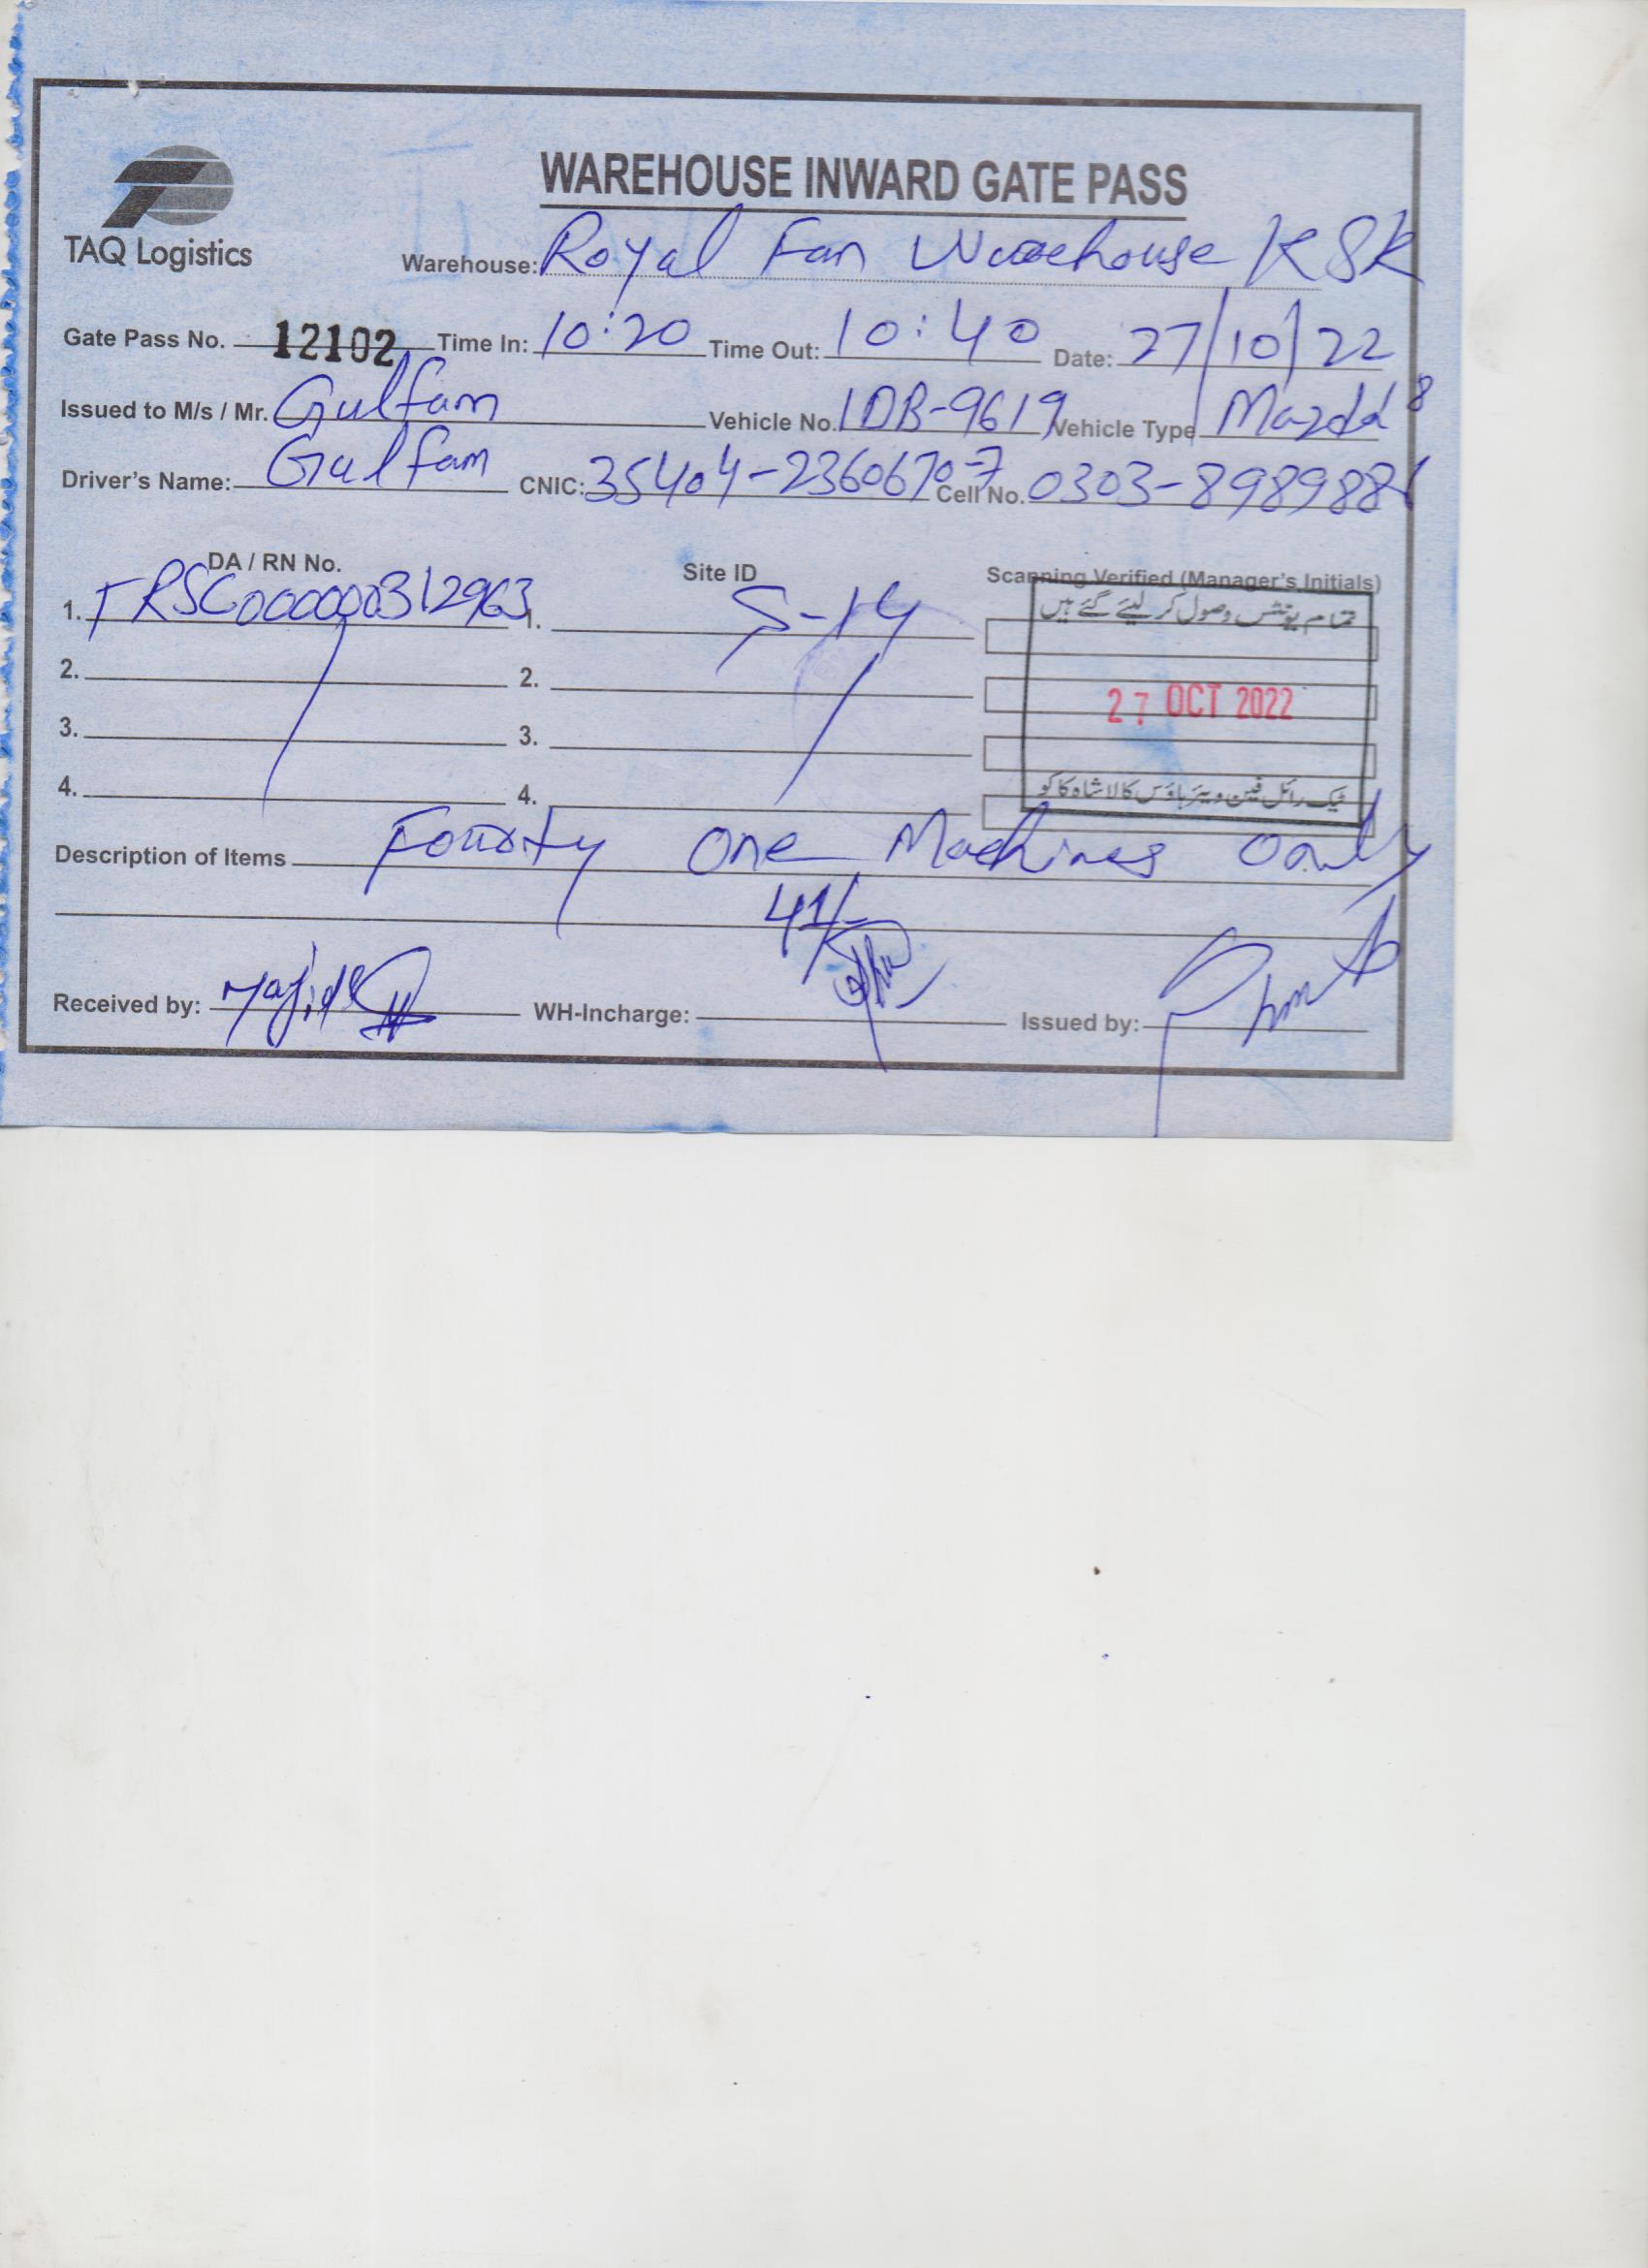 WAREHOUSE INWARD GATE PASS
TAQ Logistics
Warehouse: Royal Fan Warehouse KSK
Gate Pass No. 12102 Time In: 10:20 Time Out: 10:40 Date: 27/10/22
Issued to M/s / Mr. Gulfam Vehicle No. LDB-9619 Vehicle Type Mazda
Driver's Name: Gulfam CNIC: 35404-2360670-7 Cell No. 0303-8989881
DA / RN No. Site ID Scanning Verified (Manager's Initials)
1. TRSC000000312963 1. S-14
تمام یونٹس وصول کر لیئے گئے ہیں
2. 2.
27 OCT 2022
3. 3.
4. 4.
ٹیک رائل فین ویئر ہاؤس کالا شاہ کاکو
Description of Items Fourty One Machines Only
41/-
Received by: Majid WH-Incharge: Issued by: